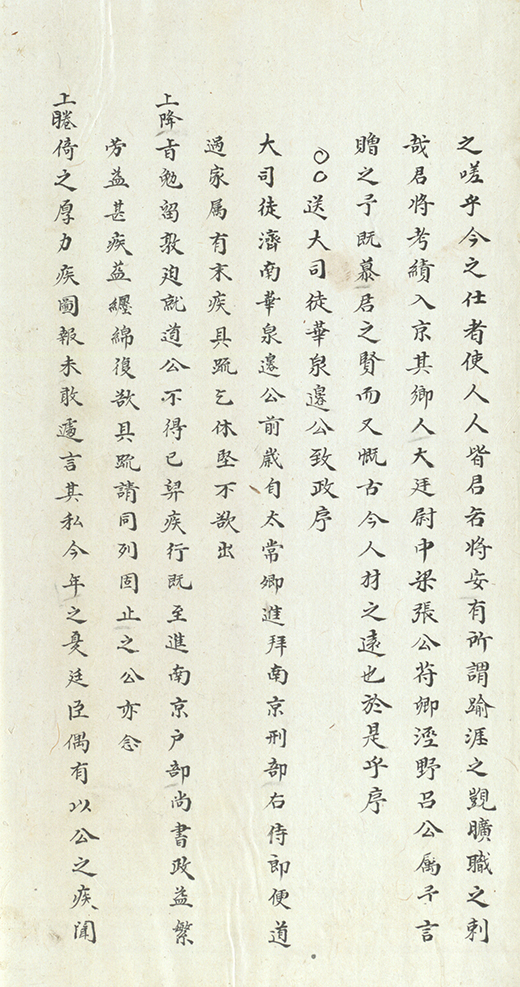 之嗟乎今之仕者使人人皆君若將安有所謂踰涯之覬曠職之刺
哉君將考績入京其鄉人大廷尉中梁張公符卿涇野呂公属予言
贈之予既慕君之賢而又慨古今人材之遠也於是乎序
○○送大司徒華泉邊公致政序
大司徒濟南華泉邊公前歲自太常卿進拜南京刑部右侍郎便道
過家属有末疾具疏乞休堅不欲出
上降旨勉留敦廹就道公不得已舁疾行既至進南京户部尚書政益繁
劳益甚疾益纒綿復欲具疏請同列固止之公亦念
上睠倚之厚力疾圖報未敢遽言其私今年之夏廷臣偶有以公之疾聞